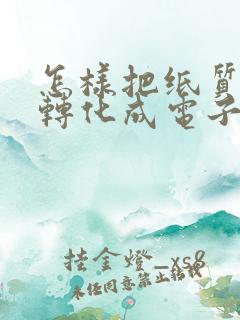 怎樣把纸質
轉化成電子
挂金燈_xs8
未任同意禁止轉載